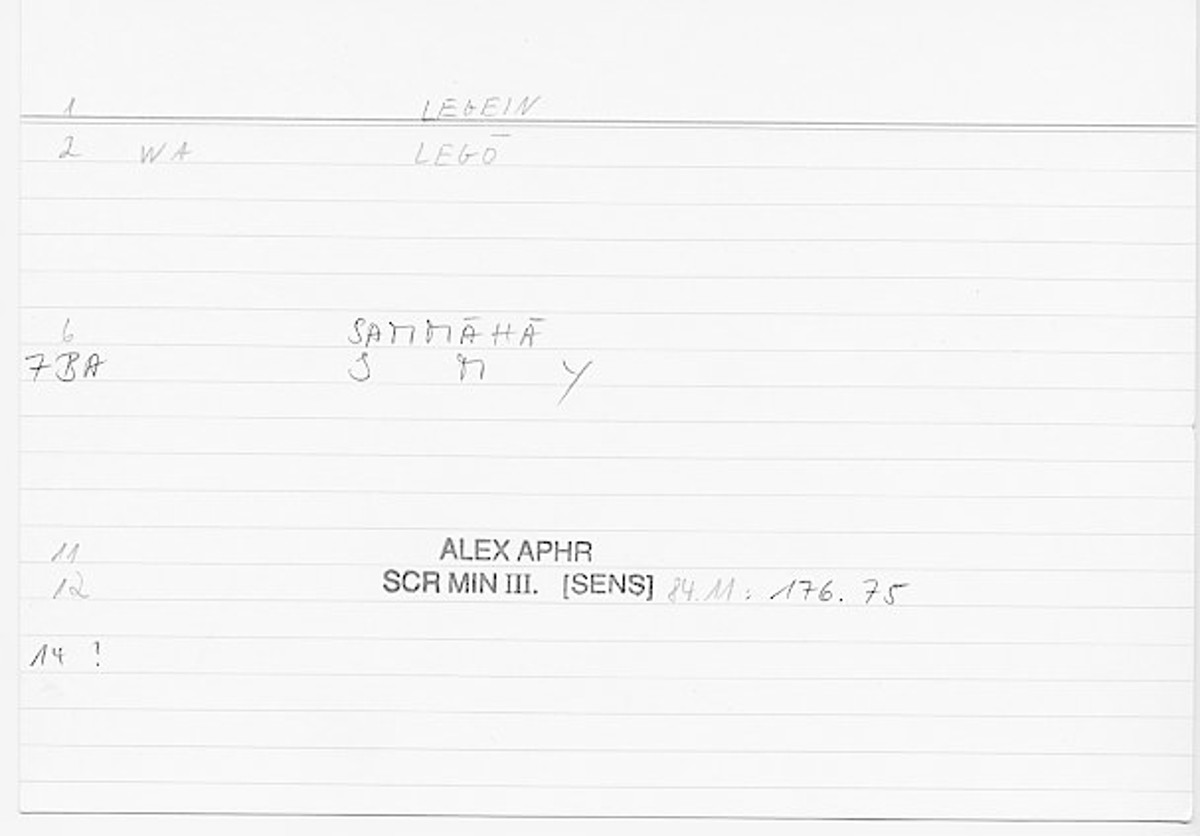 1 LEGEIN
2 WA LEGŌ
6 SAMMĀHĀ
7 BA S M Y
11 ALEX APHR
12 SCR MIN III. [SENS] 84.11 : 176.75
14 !